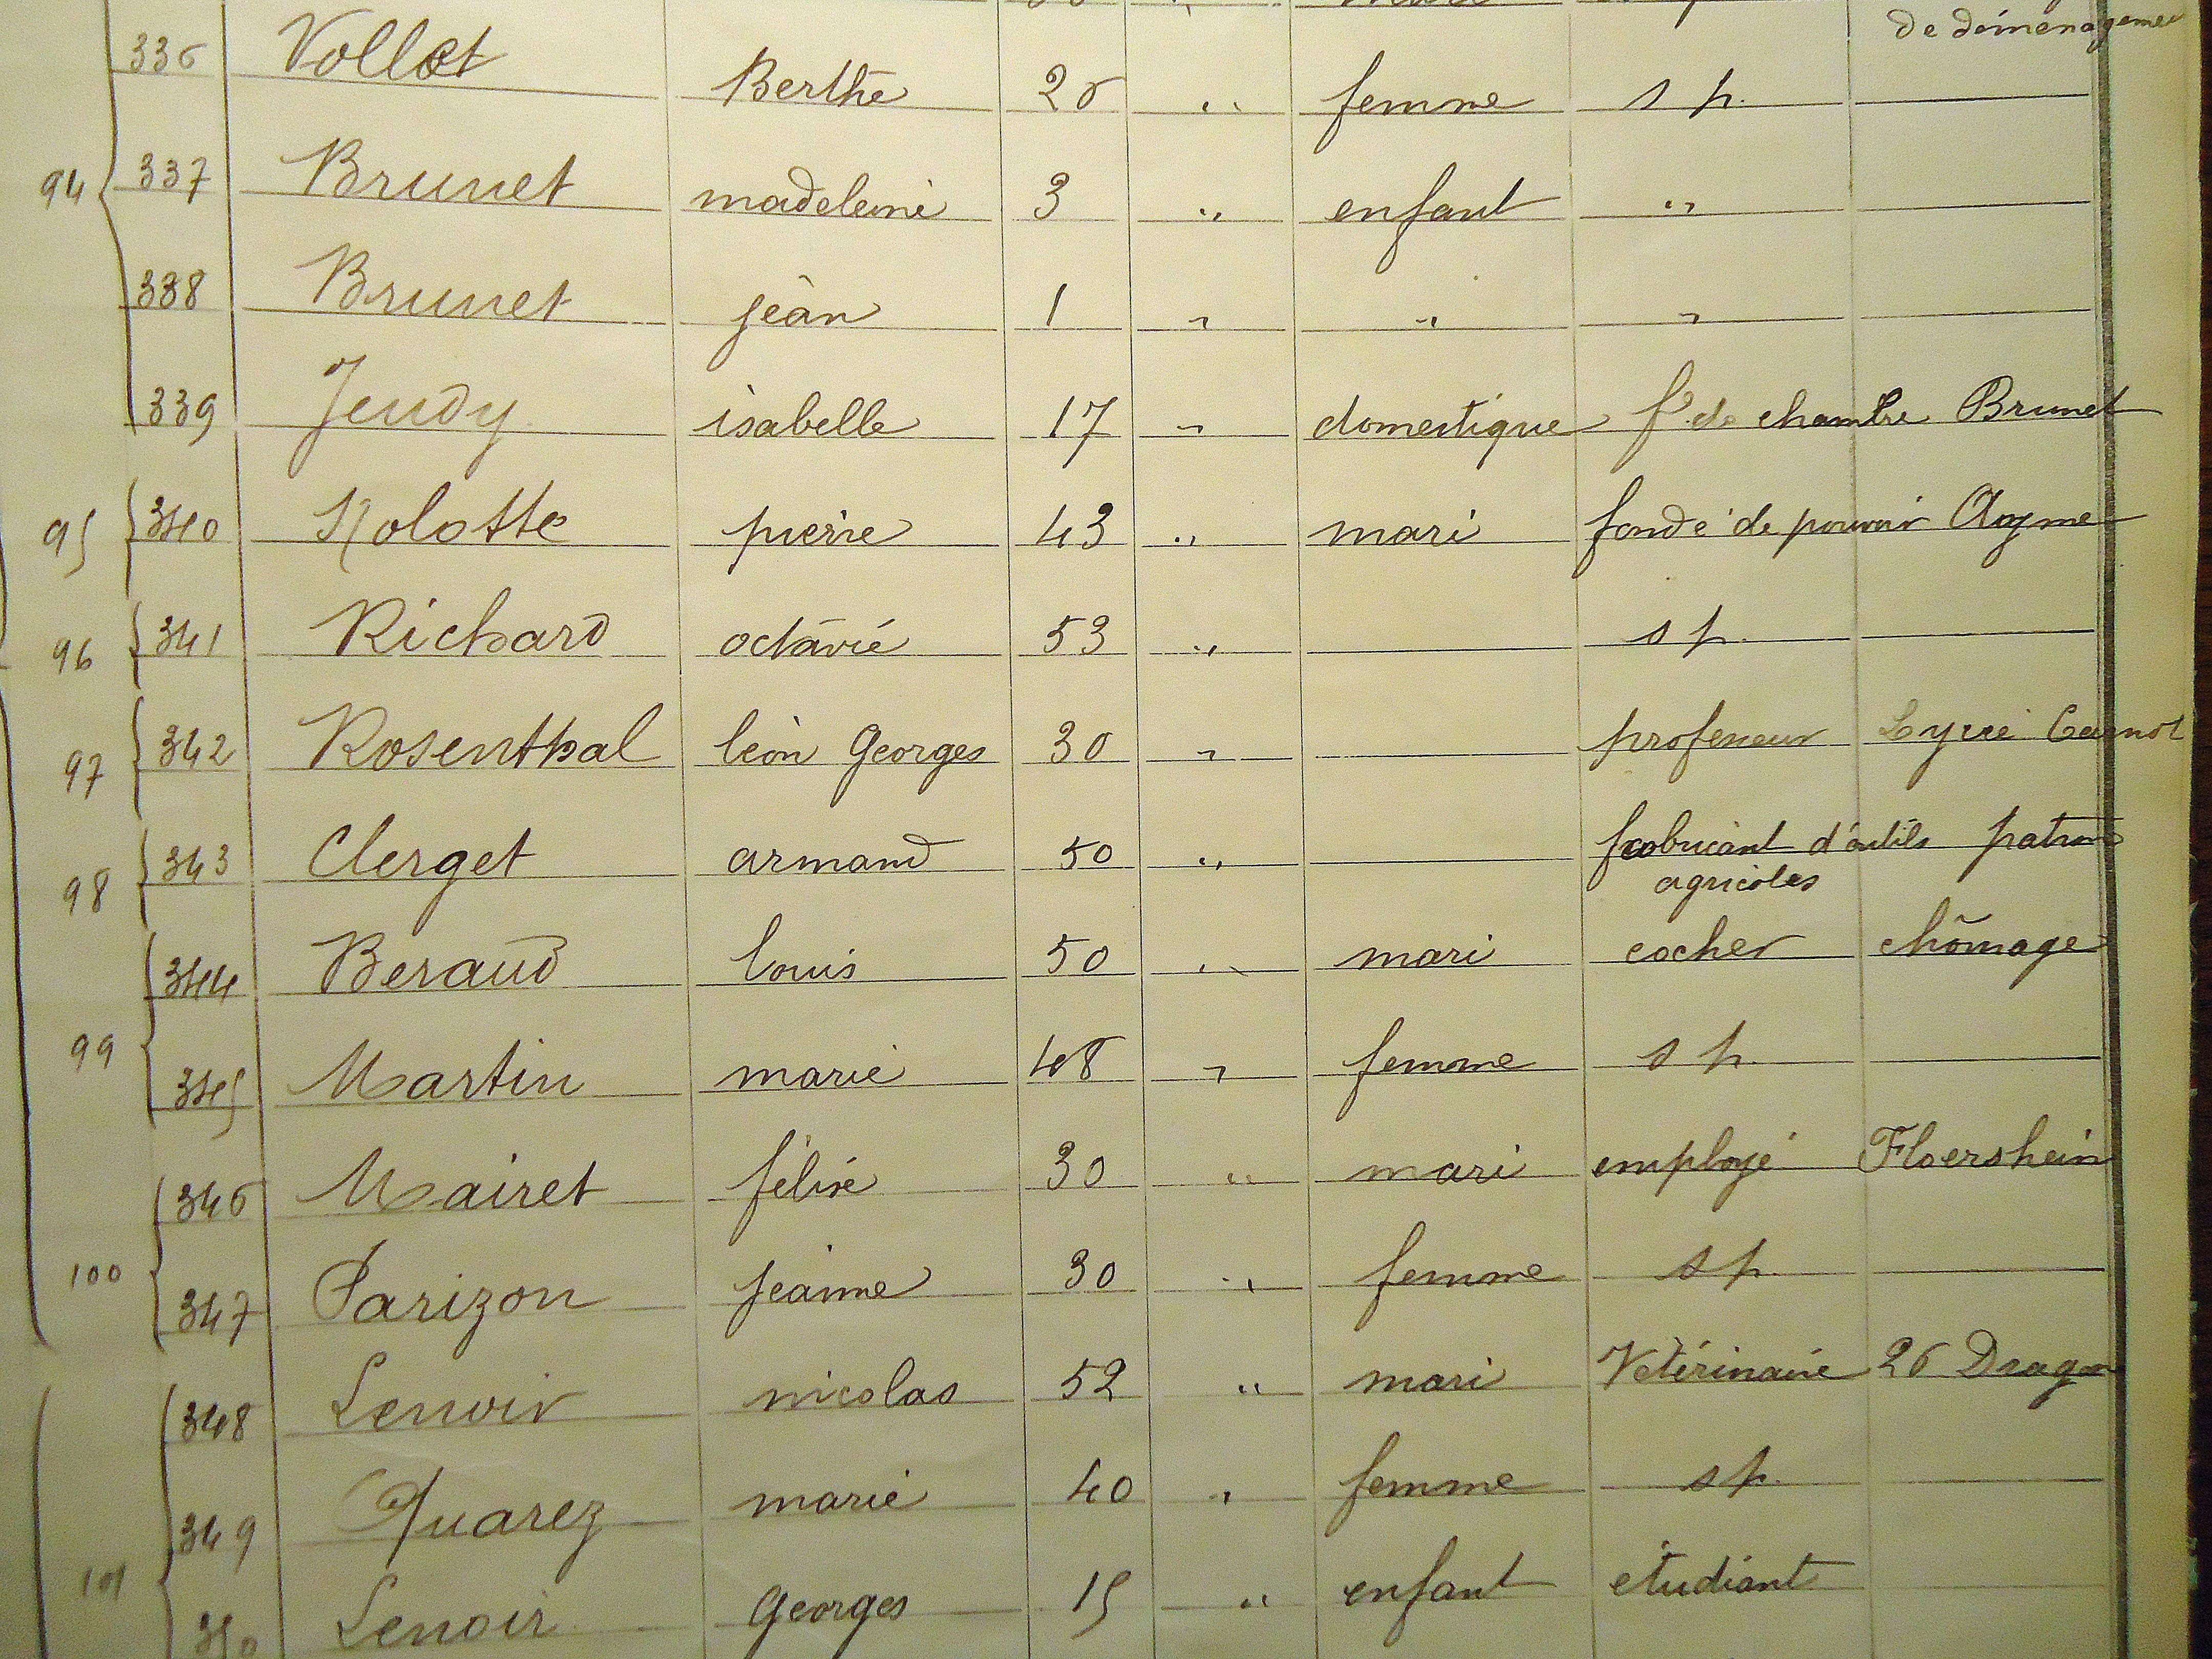 de déménageme
336 Vollot Berthe 26 " femme s p.
94 337 Brunet madeleine 3 " enfant "
338 Brunet jean 1 " " "
339 Jeudy isabelle 17 " domestique f. de chambre Brunet
95 340 Kolotte pierre 43 " mari fondé de pouvoir Ayme
96 341 Richard octavie 53 " s p.
97 342 Rosenthal léon Georges 30 " professeur Lycée Carnot
98 343 Clerget armand 50 " fabricant d'outils patron
agricoles
344 Beraud louis 50 " mari cocher chômage
99
345 Martin marie 48 " femme s p.
346 Mairet félix 30 " mari employé Floershein
100
347 Parizon jeanne 30 " femme s p.
348 Lenoir nicolas 52 " mari Vétérinaire 26 Dragon
349 Quarez marie 40 " femme s p.
101
350 Lenoir Georges 15 " enfant étudiant